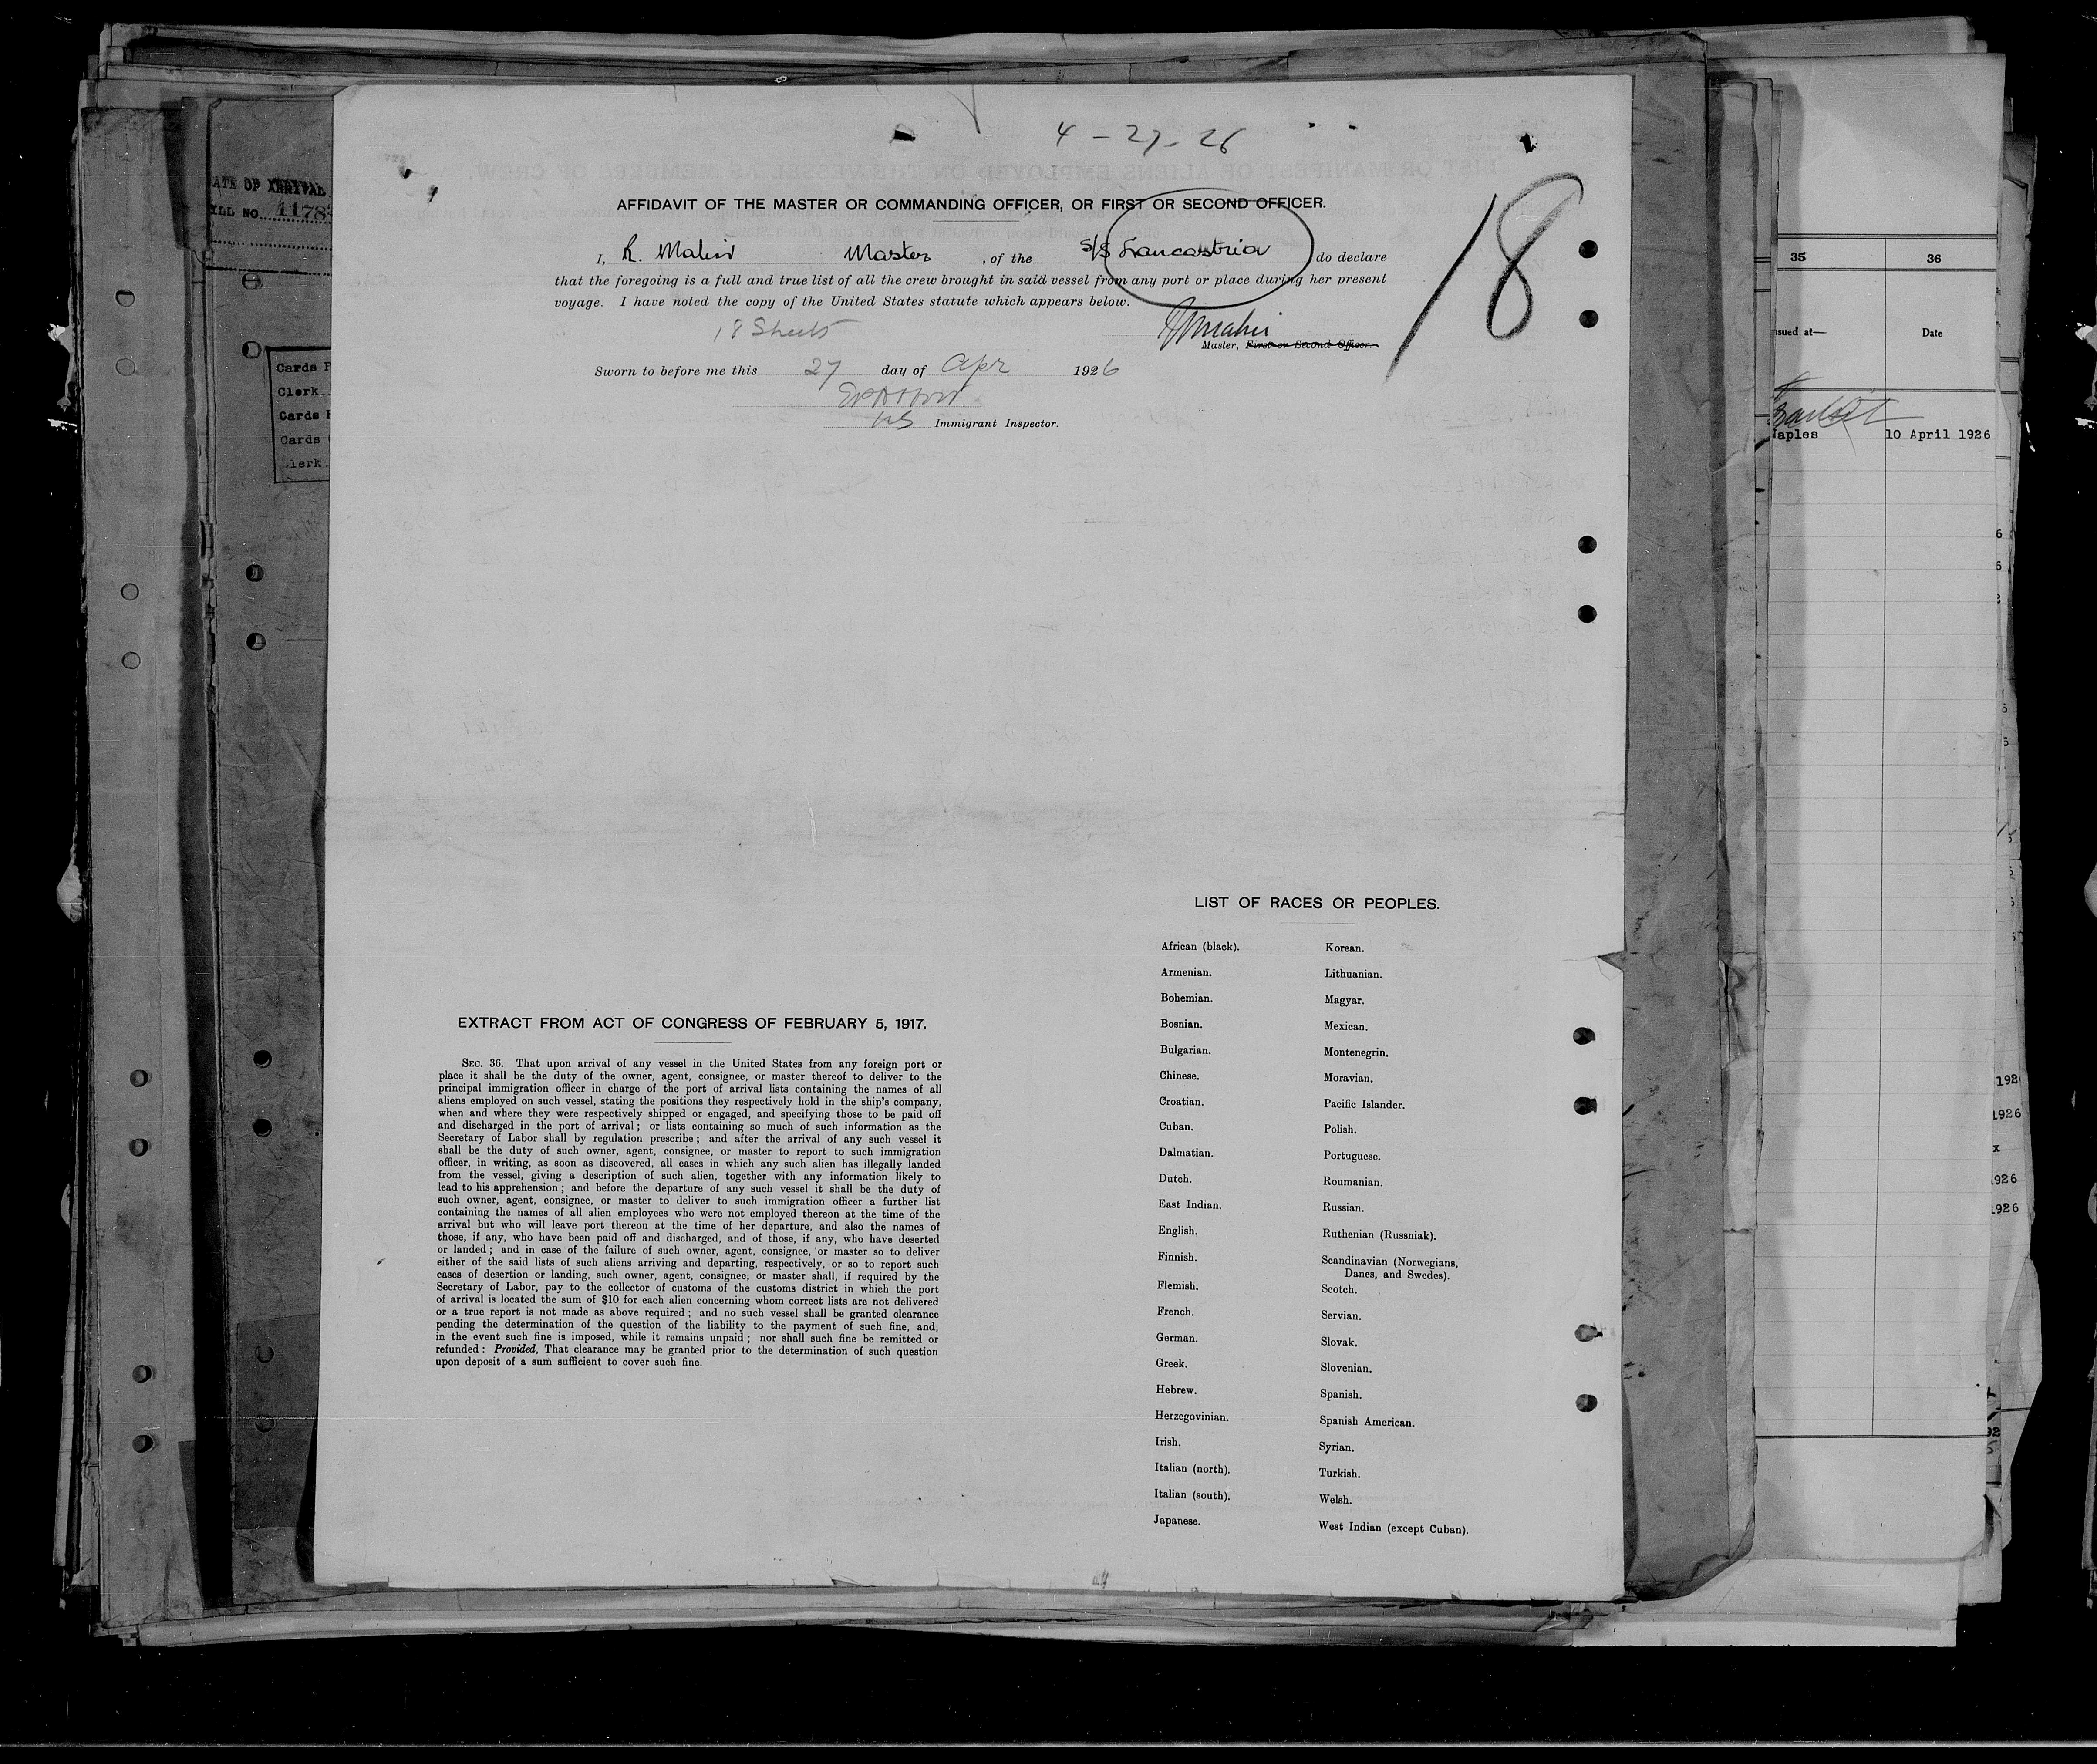 4 - 27 - 26
AFFIDAVIT OF THE MASTER OR COMMANDING OFFICER, OR FIRST OR SECOND OFFICER.
I, R. Master, of the S/S Lancastria do declare
that the foregoing is a full and true list of all the crew brought in said vessel from any port or place during her present
voyage. I have noted the copy of the United States statute which appears below.
18 Sheets
Master, First or Second Officer.
Sworn to before me this 27 day of Apr 1926
Immigrant Inspector.
18
LIST OF RACES OR PEOPLES.
African (black).
Armenian.
Bohemian.
Bosnian.
Bulgarian.
Chinese.
Croatian.
Cuban.
Dalmatian.
Dutch.
East Indian.
English.
Finnish.
Flemish.
French.
German.
Greek.
Hebrew.
Herzegovinian.
Irish.
Italian (north).
Italian (south).
Japanese.
Korean.
Lithuanian.
Magyar.
Mexican.
Montenegrin.
Moravian.
Pacific Islander.
Polish.
Portuguese.
Roumanian.
Russian.
Ruthenian (Russniak).
Scandinavian (Norwegians,
Danes, and Swedes).
Scotch.
Servian.
Slovak.
Slovenian.
Spanish.
Spanish American.
Syrian.
Turkish.
Welsh.
West Indian (except Cuban).
EXTRACT FROM ACT OF CONGRESS OF FEBRUARY 5, 1917.
SEC. 36. That upon arrival of any vessel in the United States from any foreign port or
place it shall be the duty of the owner, agent, consignee, or master thereof to deliver to the
principal immigration officer in charge of the port of arrival lists containing the names of all
aliens employed on such vessel, stating the positions they respectively hold in the ship's company,
when and where they were respectively shipped or engaged, and specifying those to be paid off
and discharged in the port of arrival; or lists containing so much of such information as the
Secretary of Labor shall by regulation prescribe; and after the arrival of any such vessel it
shall be the duty of such owner, agent, consignee, or master to report to such immigration
officer, in writing, as soon as discovered, all cases in which any such alien has illegally landed
from the vessel, giving a description of such alien, together with any information likely to
lead to his apprehension; and before the departure of any such vessel it shall be the duty of
such owner, agent, consignee, or master to deliver to such immigration officer a further list
containing the names of all alien employees who were not employed thereon at the time of the
arrival but who will leave port thereon at the time of her departure, and also the names of
those, if any, who have been paid off and discharged, and of those, if any, who have deserted
or landed; and in case of the failure of such owner, agent, consignee, or master so to deliver
either of the said lists of such aliens arriving and departing, respectively, or so to report such
cases of desertion or landing, such owner, agent, consignee, or master shall, if required by the
Secretary of Labor, pay to the collector of customs of the customs district in which the port
of arrival is located the sum of $10 for each alien concerning whom correct lists are not delivered
or a true report is not made as above required; and no such vessel shall be granted clearance
pending the determination of the question of the liability to the payment of such fine, and,
in the event such fine is imposed, while it remains unpaid; nor shall such fine be remitted or
refunded: Provided, That clearance may be granted prior to the determination of such question
upon deposit of a sum sufficient to cover such fine.
35 36
Date
10 April 1926
Clerk
Cards